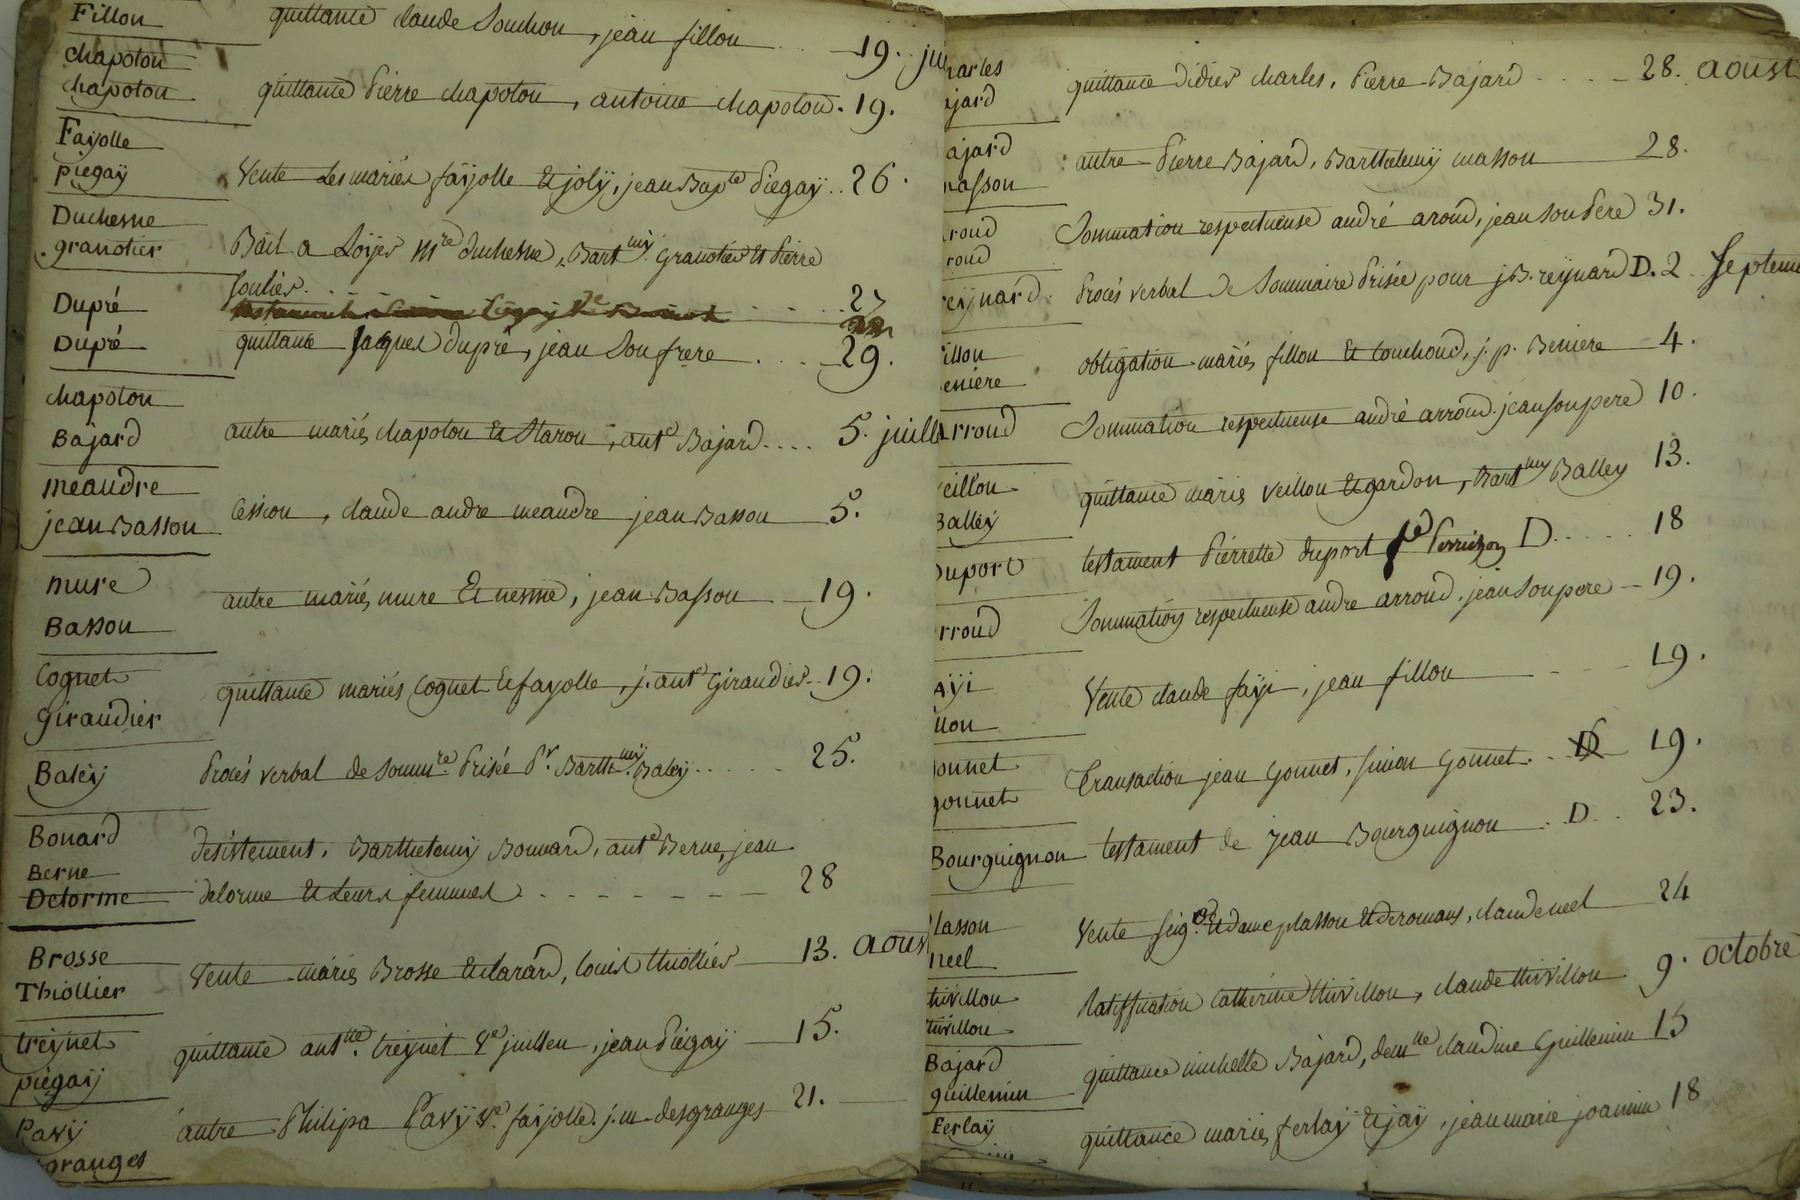 Fillon
quittance claude Souchon, jean fillon 19. jui
chapoton
chapoton
quittance Pierre chapoton, antoine chapoton. 19.
Fayolle
piegaÿ
Vente Les mariés faÿolle & jolÿ, jean Bapte Piegaÿ.. 26.
Duchesne
granotier
Bail a Loÿer Mre duchesne, Bartmÿ. Granotier et Pierre
Soulier. 27
Dupré
Dupré
quittance Jacques dupré, jean Son frere 29.
chapoton
Bajard
autre mariés chapoton & Staron, ante Bajard.... 5. juill
meandre
jean Basson
Cession, claude andre meandre jean Basson 5.
mure
Basson
autre mariés mure & nesme, jean Basson 19.
Cognet
giraudier
quittance mariés Cognet & fayolle, j. ante Giraudier.. 19.
Baleÿ
Procés verbal de sommre Prisée Pr. Barthmÿ. Baleÿ 25.
Bonard
Berne
Delorme
desistement, Barthelemÿ Bonnard, ante Berne, jean
delorme & Leurs femmes 28
Brosse
Thiollier
Vente mariés Brosse & clarard, Louis thiollier 13. aous
treÿnet
piegaÿ
quittance antnte. treÿnet Ve juillen, jean Piégaÿ 15.
Pavÿ
granges
autre Philipa Pavÿ Ve. faÿolle. j. m. desgranges 21.
harles
ajard
quittance didier charles, Pierre Bajard 28. aoust
ajard
masson
autre Pierre Bajard, Barthelemÿ masson 28.
roud
roud
Sommation respectueuse andré aroud, jean son Pere 31.
reÿnard
Procés verbal de Sommaire Prisée pour j.B. reÿnard D. 2 Septem
illon
eniere
obligation mariés fillon & couchoud, j. p. Beniere 4.
arroud
Sommation respectueuse andré arroud. jean son pere 10.
veillon
Balleÿ
quittance mariés veillon & gardon, Bartmy Balley 13.
Duport
testament Pierrette duport fe Perrichon D..... 18
rroud
Sommation respectueuse andre arroud, jean son pere 19.
aÿi
llon
Vente claude faÿi, jean fillon 19.
onnet
gonnet
Transaction jean Gonnet, simon Gonnet. D 19.
Bourguignon
testament de jean Bourguignon D 23.
lasson
neel
Vente seigr & dame plasson & deromans, claude neel 24
tivillon
tivillon
Ratiffication Catherine thivillon, claude thivillon 9. octobre
Bajard
guillemin
quittance michelle Bajard, demlle claudine Guillemin 15
Ferlaÿ
quittance mariés ferlaÿ & jaÿ, jean marie joannin 18